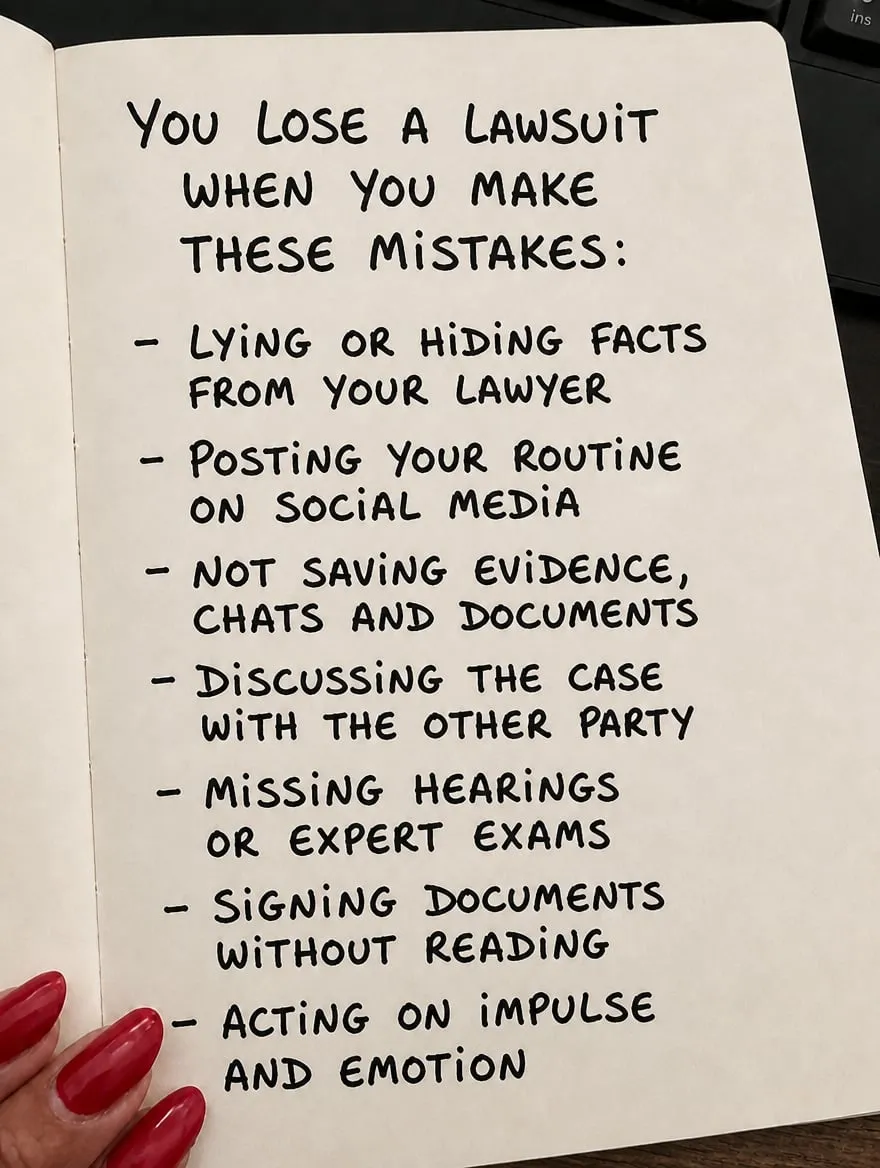 ins
YOU LOSE A LAWSUiT
WHEN YOU MAKE
THESE MiSTAKES:
- LYiNG OR HiDiNG FACTS
FROM YOUR LAWYER
- POSTiNG YOUR ROUTiNE
ON SOCiAL MEDiA
- NOT SAViNG EViDENCE,
CHATS AND DOCUMENTS
- DiSCUSSiNG THE CASE
WiTH THE OTHER PARTY
- MiSSiNG HEARiNGS
OR EXPERT EXAMS
- SiGNiNG DOCUMENTS
WiTHOUT READiNG
- ACTiNG ON iMPULSE
AND EMOTiON